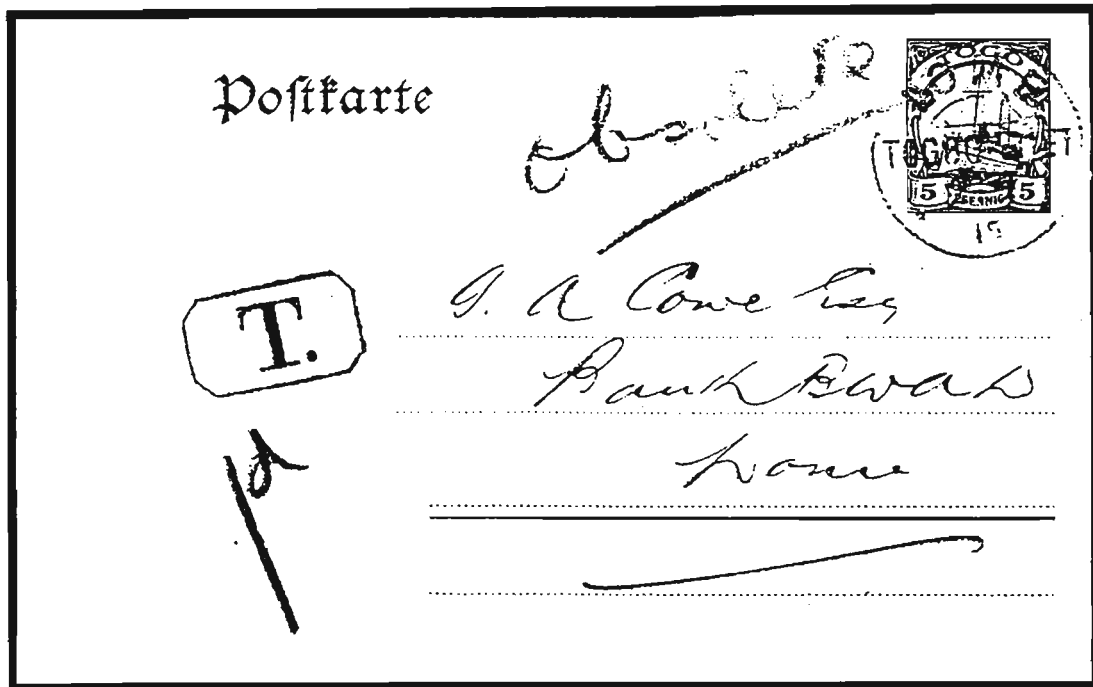 Postkarte
TOGO
5 PFENNIG 5
T.
G. A Cowe Esq
Bank BWA Ld
Lome